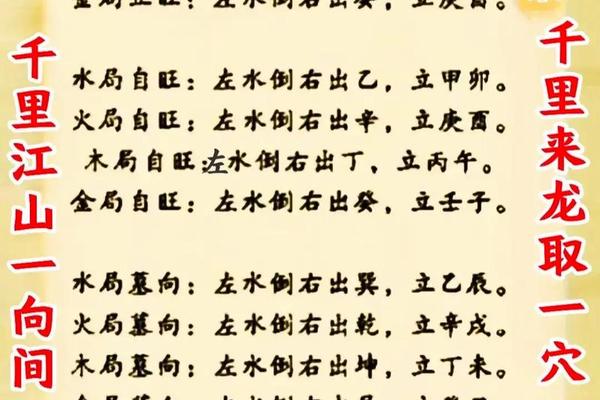 千里来龙取一穴
千里江山一向间
金局正旺：左水倒右出癸，立庚酉。
水局自旺：左水倒右出乙，立甲卯。
火局自旺：左水倒右出辛，立庚酉。
木局自旺:左水倒右出丁，立丙午。
金局自旺：左水倒右出癸，立壬子。
水局墓向：左水倒右出巽，立乙辰。
火局墓向：左水倒右出乾，立辛戌。
木局墓向：左水倒右出坤，立丁未。